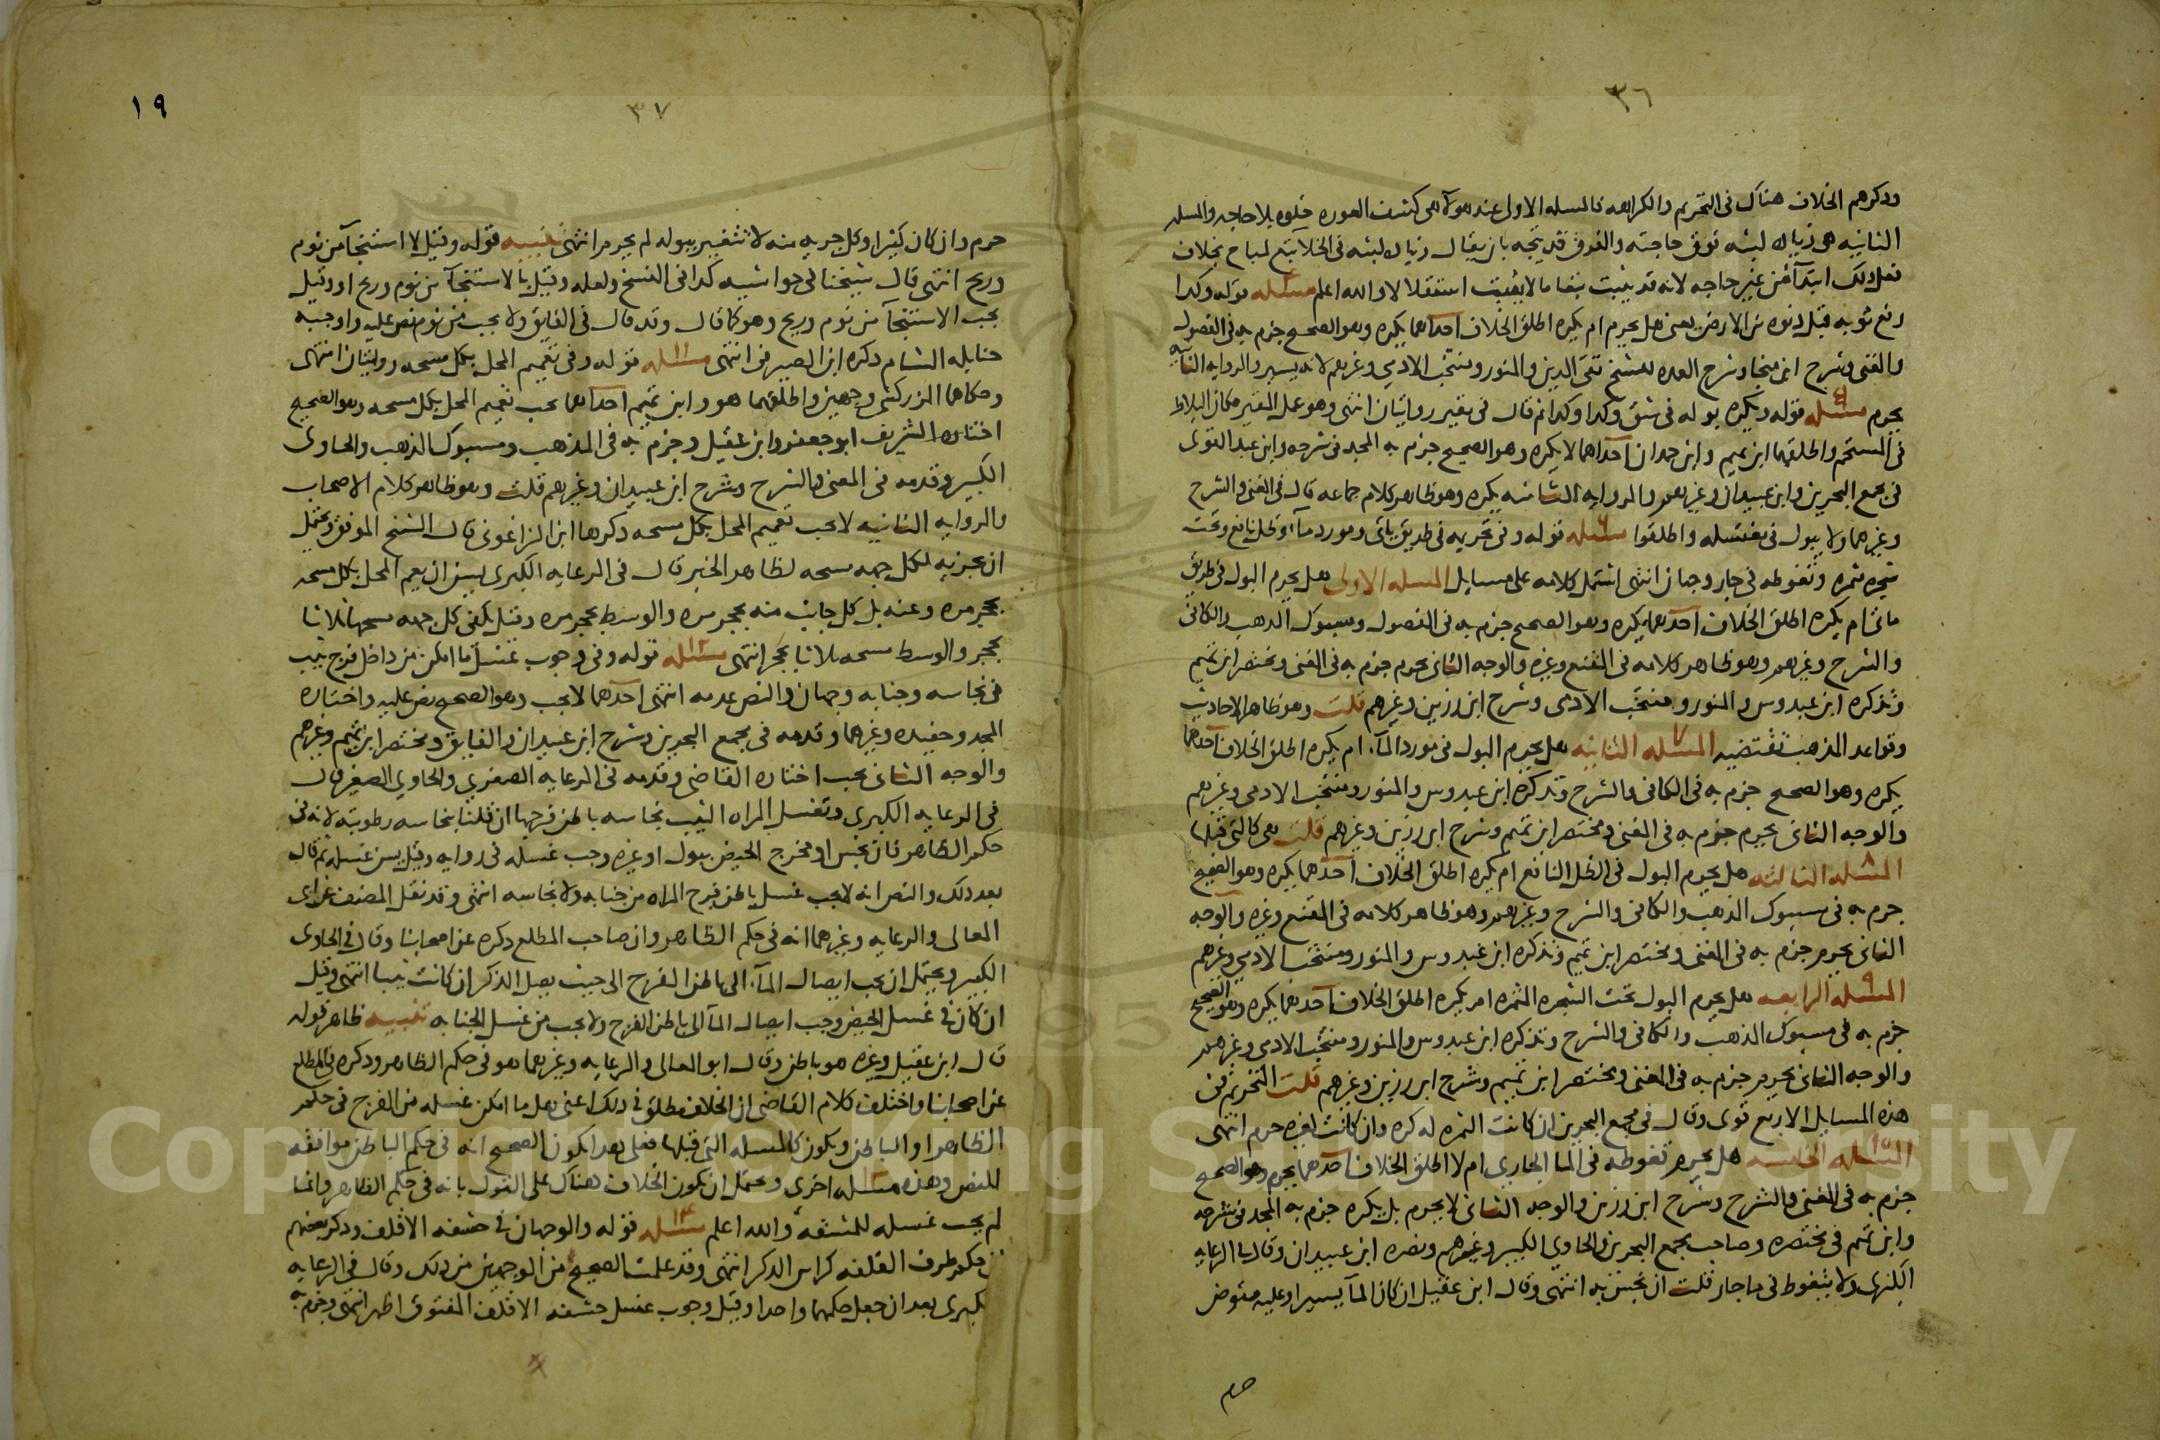 ٣٦
وذكرهم الخلاف هناك فى التحريم والكراهه فالمسله الاولى عند هولآ هى كشف العوره خلوه بلا حاجه والمسله
الثانيه هى زياده لبثه فوق حاجته والفرق قد يتجه بان يقال زياده لبثه فى الخلا تبع لمباح بخلاف
فعل ذلك ابتدآ من غير حاجه لانه قد يثبت تبعا ما لا يثبت استقلالا والله اعلم مسئله قوله وكذا
رفع ثوبه قبل دنوه من الارض يعنى هل يحرم ام يكره اطلق الخلاف احدهما يكره وهو الصحيح جزم به فى الفصول
والمغنى وشرح ابن منجا وشرح العمده للشيخ تقى الدين والمنور ومنتخب الادمى وغيرهم لانه يسير والروايه الثانيه
يحرم مسئله قوله ويكره بوله فى شق وكذا وكذا ثم قال فى مقير روايتان انتهى وهو على المقير مكان البلاط
فى المستحم واطلقهما ابن تميم وابن حمدان احداهما لا يكره وهو الصحيح جزم به المجد فى شرحه وابن عبد القوى
فى مجمع البحرين وابن عبيدان وغيرهم والروايه الثانيه يكره وهو ظاهر كلام جماعه قال فى المغنى والشرح
وغيرهما ولا يبول فى مغتسله واطلقوا مسئله ٦ قوله وفى تحريمه فى طريق ياتى ومورد مآ وظل نافع وتحت
شجره ثمره وتغوطه فى جار وجهان انتهى اشتمل كلامه على مسايل المسله الاولى هل يحرم البول فى طريق
ماتى ام يكره اطلق الخلاف احدهما يكره وهو الصحيح جزم به فى الفصول ومسبوك الذهب والكافى
والشرح وغيرهم وهو ظاهر كلامه فى المقنع وغيره والوجه الثانى يحرم جزم به فى المغنى ومختصر ابن تميم
وتذكره ابن عبدوس والمنور ومنتخب الادمى وشرح ابن رزين وغيرهم قلت وهو ظاهر الاحاديث
وقواعد المذهب تقتضيه المسله الثانيه ٧ هل يحرم البول فى مورد المآ ام يكره اطلق الخلاف احدهما
يكره وهو الصحيح جزم به فى الكافى والشرح وتذكره ابن عبدوس والمنور ومنتخب الادمى وغيرهم
والوجه الثانى يحرم جزم به فى المغنى ومختصر ابن تميم وشرح ابن رزين وغيرهم قلت هى كالتى قبلها
المسله الثالثه ٨ هل يحرم البول فى الظل النافع ام يكره اطلق الخلاف احدهما يكره وهو الصحيح
جزم به فى مسبوك الذهب والكافى والشرح وغيرهم وهو ظاهر كلامه فى المقنع وغيره والوجه
الثانى يحرم جزم به فى المغنى ومختصر ابن تميم وتذكره ابن عبدوس والمنور ومنتخب الادمى وغيرهم
المسله الرابعه ٩ هل يحرم البول تحت الشجره المثمره ام يكره اطلق الخلاف احدهما يكره وهو الصحيح
جزم به فى مسبوك الذهب والكافى والشرح وتذكره ابن عبدوس والمنور ومنتخب الادمى وغيرهم
والوجه الثانى يحرم جزم به فى المغنى ومختصر ابن تميم وشرح ابن رزين وغيرهم قلت التحريم فى
هذه المسايل الاربع قوى وقال فى مجمع البحرين ان كانت الثمره له كره وان كانت لغيره حرم انتهى
المسله الخامسه ١٠ هل يحرم تغوطه فى المآ الجارى ام لا اطلق الخلاف احدهما يحرم وهو الصحيح
جزم به فى المغنى والشرح وشرح ابن رزين والوجه الثانى لا يحرم بل يكره جزم به المجد فى شرحه
وابن تميم فى مختصره وصاحب مجمع البحرين والحاوى الكبير وغيرهم ونصره ابن عبيدان وقال فى الرعايه
الكبرى ولا يتغوط فى ما جار قلت ان نجس به انتهى وقال ابن عقيل ان كان المآ يسيرا وعليه متوض
١٩
٣٧
حرم وان كان كثيرا وكل جريه منه لا تتغير ببوله لم يحرم انتهى تنبيه قوله وقيل لا استنجآ من نوم
وريح انتهى قال شيخنا فى حواشيه كذا فى النسخ ولعله وقيل بالاستنجآ من نوم وريح او وقيل
يجب الاستنجآ من نوم وريح وهو كما قال وقد قال فى الفايق ولا يجب من نوم نص عليه واوجبه
حنابله الشام ذكره ابن الصيرفى انتهى مسئله ١١ قوله وفى تعميم المحل بكل مسحه روايتان انتهى
وحكاهما الزركشى وجهين واطلقهما هو وابن تميم احداهما يجب تعميم المحل بكل مسحه وهو الصحيح
اختاره الشريف ابو جعفر وابن عقيل وجزم به فى المذهب ومسبوك الذهب والحاوى
الكبير وقدمه فى المغنى والشرح وشرح ابن عبيدان وغيرهم قلت وهو ظاهر كلام الاصحاب
والروايه الثانيه لا يجب تعميم المحل بكل مسحه ذكرها ابن الزاغونى قال الشيخ الموفق ويحتمل
ان يجزيه لكل جهه مسحه لظاهر الخبر قال فى الرعايه الكبرى يسن ان يعم المحل بكل مسحه
بحجر مره وعنه بل كل جانب منه بحجر مره والوسط بحجر مره وقيل يكفى كل جهه مسحها ثلاثا
بحجر والوسط مسحه ثلاثا بحجر انتهى مسئله ١٢ قوله وفى وجوب غسل ما امكن من داخل فرج ثيب
فى نجاسه وجنابه وجهان والنص عدمه انتهى احدهما لا يجب وهو الصحيح نص عليه واختاره
المجد وحفيده وغيرهما وقدمه فى مجمع البحرين وشرح ابن عبيدان والفايق ومختصر ابن تميم وغيرهم
والوجه الثانى يجب اختاره القاضى وقدمه فى الرعايه الصغرى والحاوى الصغير قال
فى الرعايه الكبرى وتغسل المراه الثيب نجاسه باطن فرجها ان قلنا بنجاسه رطوبته لانه فى
حكم الظاهر فان نجس او مخرج الحيض ببول او غيره وجب غسله فى روايه وقيل يسن غسله ثم قال
بعد ذلك والنص انه لا يجب غسل باطن فرج المراه من جنابه ولا نجاسه انتهى وقد نقل المصنف عن ابى
المعالى والرعايه وغيرهما انه فى حكم الظاهر وان صاحب المطلع ذكره عن اصحابنا وقال فى الحاوى
الكبير ويحتمل ان يجب ايصال المآ الى باطن الفرج الى حيث يصل الذكر ان كانت ثيبا انتهى وقيل
ان كان فى غسل الحيض وجب ايصال المآ الى باطن الفرج ولا يجب من غسل الجنابه تنبيه ظاهر قوله
قال ابن عقيل وغيره هو باطن وقال ابو المعالى والرعايه وغيرهما هو فى حكم الظاهر وذكره فى المطلع
عن اصحابنا واختلف كلام القاضى ان الخلاف مطلق فى ذلك اعنى هل ما امكن غسله من الفرج فى حكم
الظاهر او الباطن ويكون كالمسله التى قبلها فعلى هذا يكون الصحيح انه فى حكم الباطن موافقه
للنص وهذه مسئله اخرى ويحتمل ان يكون الخلاف هناك على القول بانه فى حكم الظاهر وانما
لم يجب غسله للمشقه والله اعلم مسئله ١٣ قوله والوجهان فى حشفه الاقلف وذكر بعضهم
حكم طرف القلفه كراس الذكر انتهى وقد علمت الصحيح من الوجهين من ذلك وقال فى الرعايه
الكبرى بعد ان جعل حكمهما واحدا وقيل وجوب غسل حشفه الاقلف المفتوق اظهر انتهى وجزم به